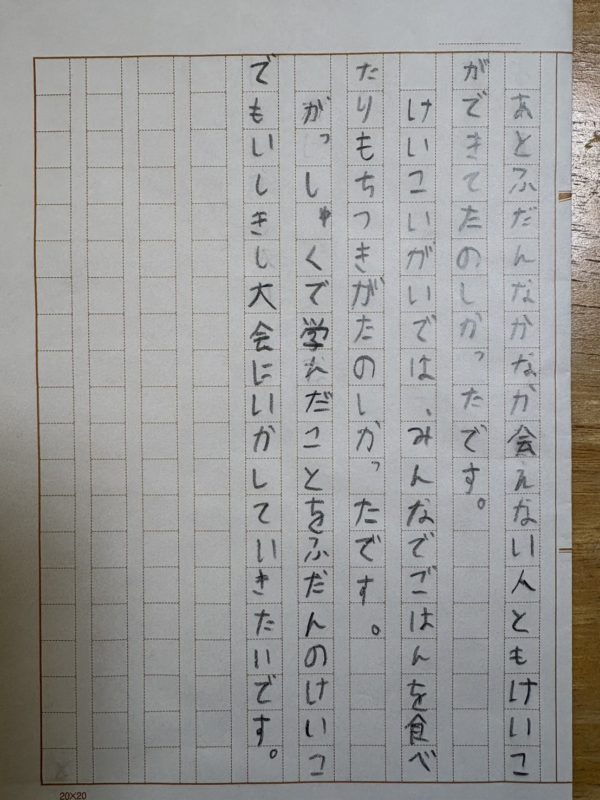 あとふだんなかなか会えない人ともけいこ
ができてたのしかったです。
けいこいがいでは、みんなでごはんを食べ
たりもちつきがたのしかったです。
がっしゅくで学んだことをふだんのけいこ
でもいしきし大会にいかしていきたいです。
20×20